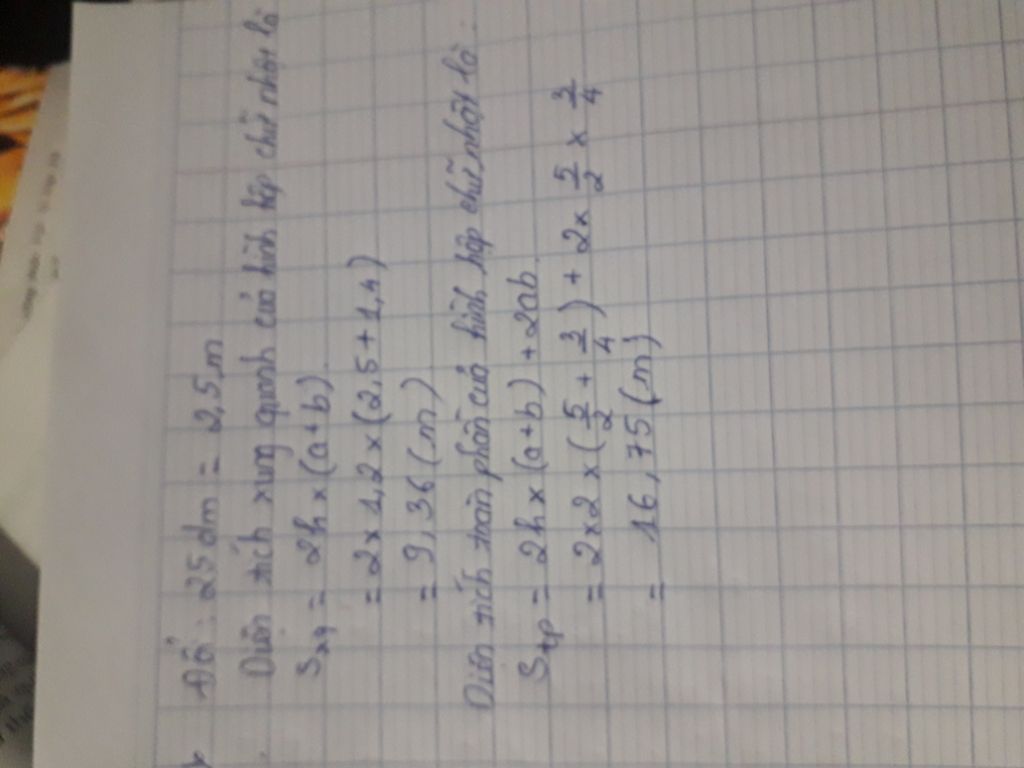 Đổi : 25 dm = 2,5 m
Diện tích xung quanh của hình hộp chữ nhật là
Sxq = 2h x (a + b).
= 2 x 1,2 x (2,5 + 1,4)
= 9,36 (m)
Diện tích toàn phần của hình hộp chữ nhật là :
Stp = 2h x (a + b) + 2ab.
= 2 x 2 x (5/2 + 3/4) + 2 x 5/2 x 3/4
= 16,75 (m)